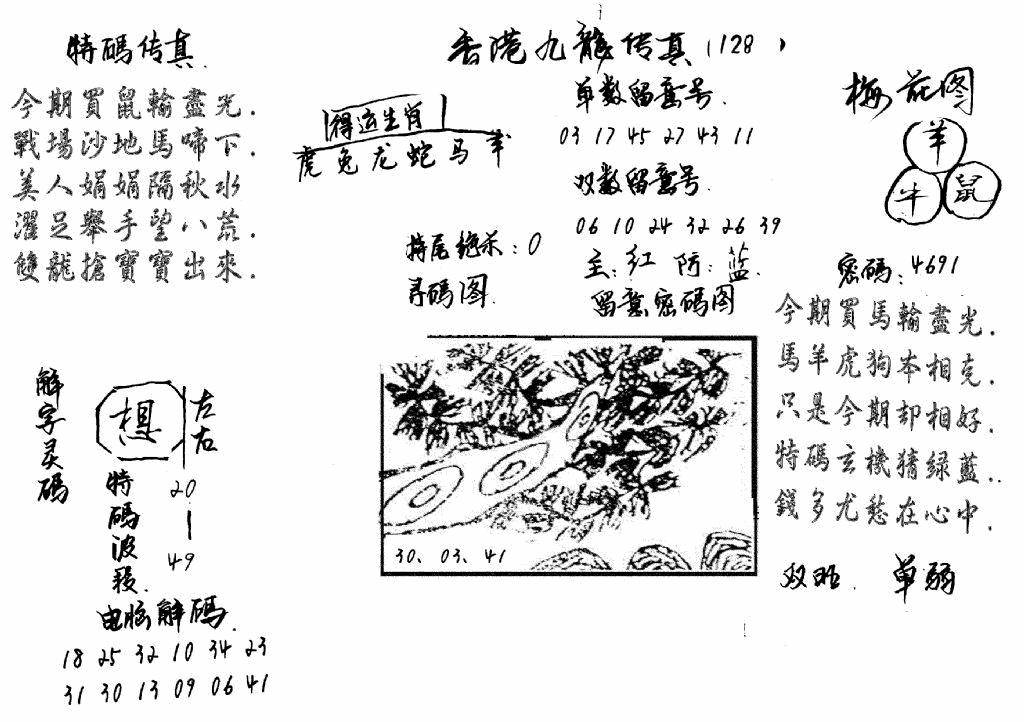 特碼传真
今期買鼠輸盡光.
戰場沙地馬啼下.
美人娟娟隔秋水
濯足舉手望八荒.
雙龍搶寶寶出來.
香港九龍传真(128)
得运生肖
虎兔龙蛇马羊
单数留意号.
03 17 45 27 43 11
双数留意号.
06 10 24 32 26 39
特尾绝杀:0
主:红 防:蓝.
寻码图.
留意密码图
30、03、41
梅花图
羊
牛 鼠
密碼:4691
今期買馬輸盡光.
馬羊虎狗本相克.
只是今期却相好.
特碼玄機猜綠藍..
錢多尤愁在心中.
双旺. 单弱
解字灵碼
想
左右
特碼波段.
20
|
49
电脑解碼.
18 25 32 10 34 23
31 30 13 09 06 41